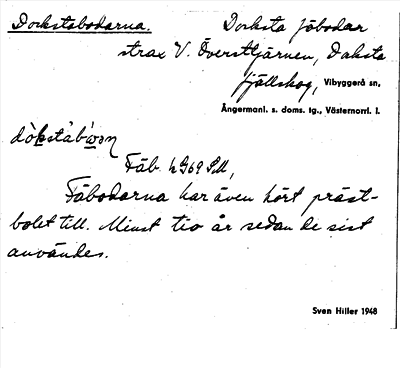 Dockstabodarna. Docksta fäbodar
strax V. Översttjärnen, Docksta
fjällskog, Vibyggerå sn,
Ångermanl. s. doms. tg., Västernorrl. l.
Fäb.
Fäbodarna har även hört präst-
bolet till. Minst tio år sedan de sist
användes.
Sven Hiller 1948